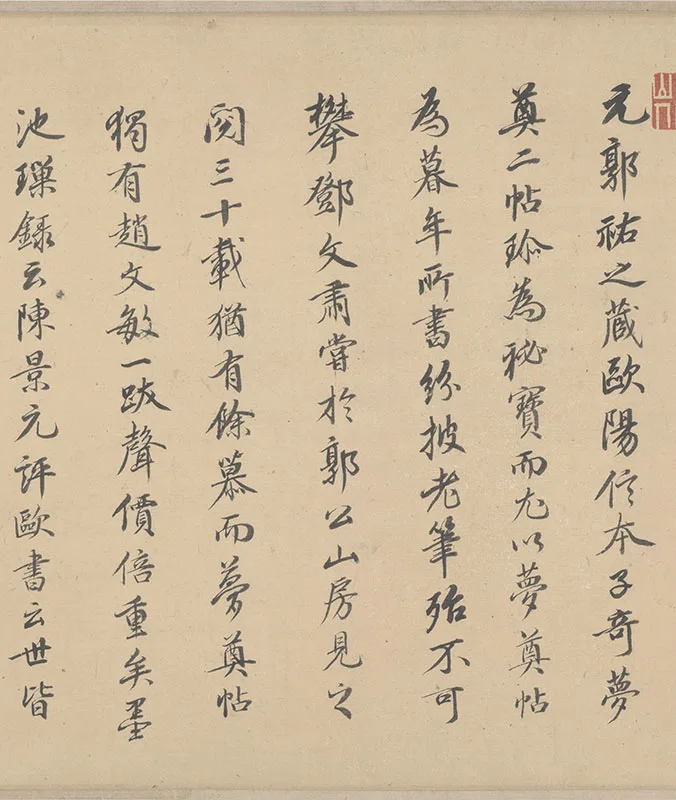 元郭祐之蔵歐陽信本子奇夢
奠二帖珎為秘寶而尤以夢奠帖
為暮年所書紛披老筆殆不可
攀鄧文肅嘗於郭公山房見之
閱三十載猶有餘慕而夢奠帖
獨有趙文敏一跋聲價倍重矣墨
池璅錄云陳景元評歐書云世皆